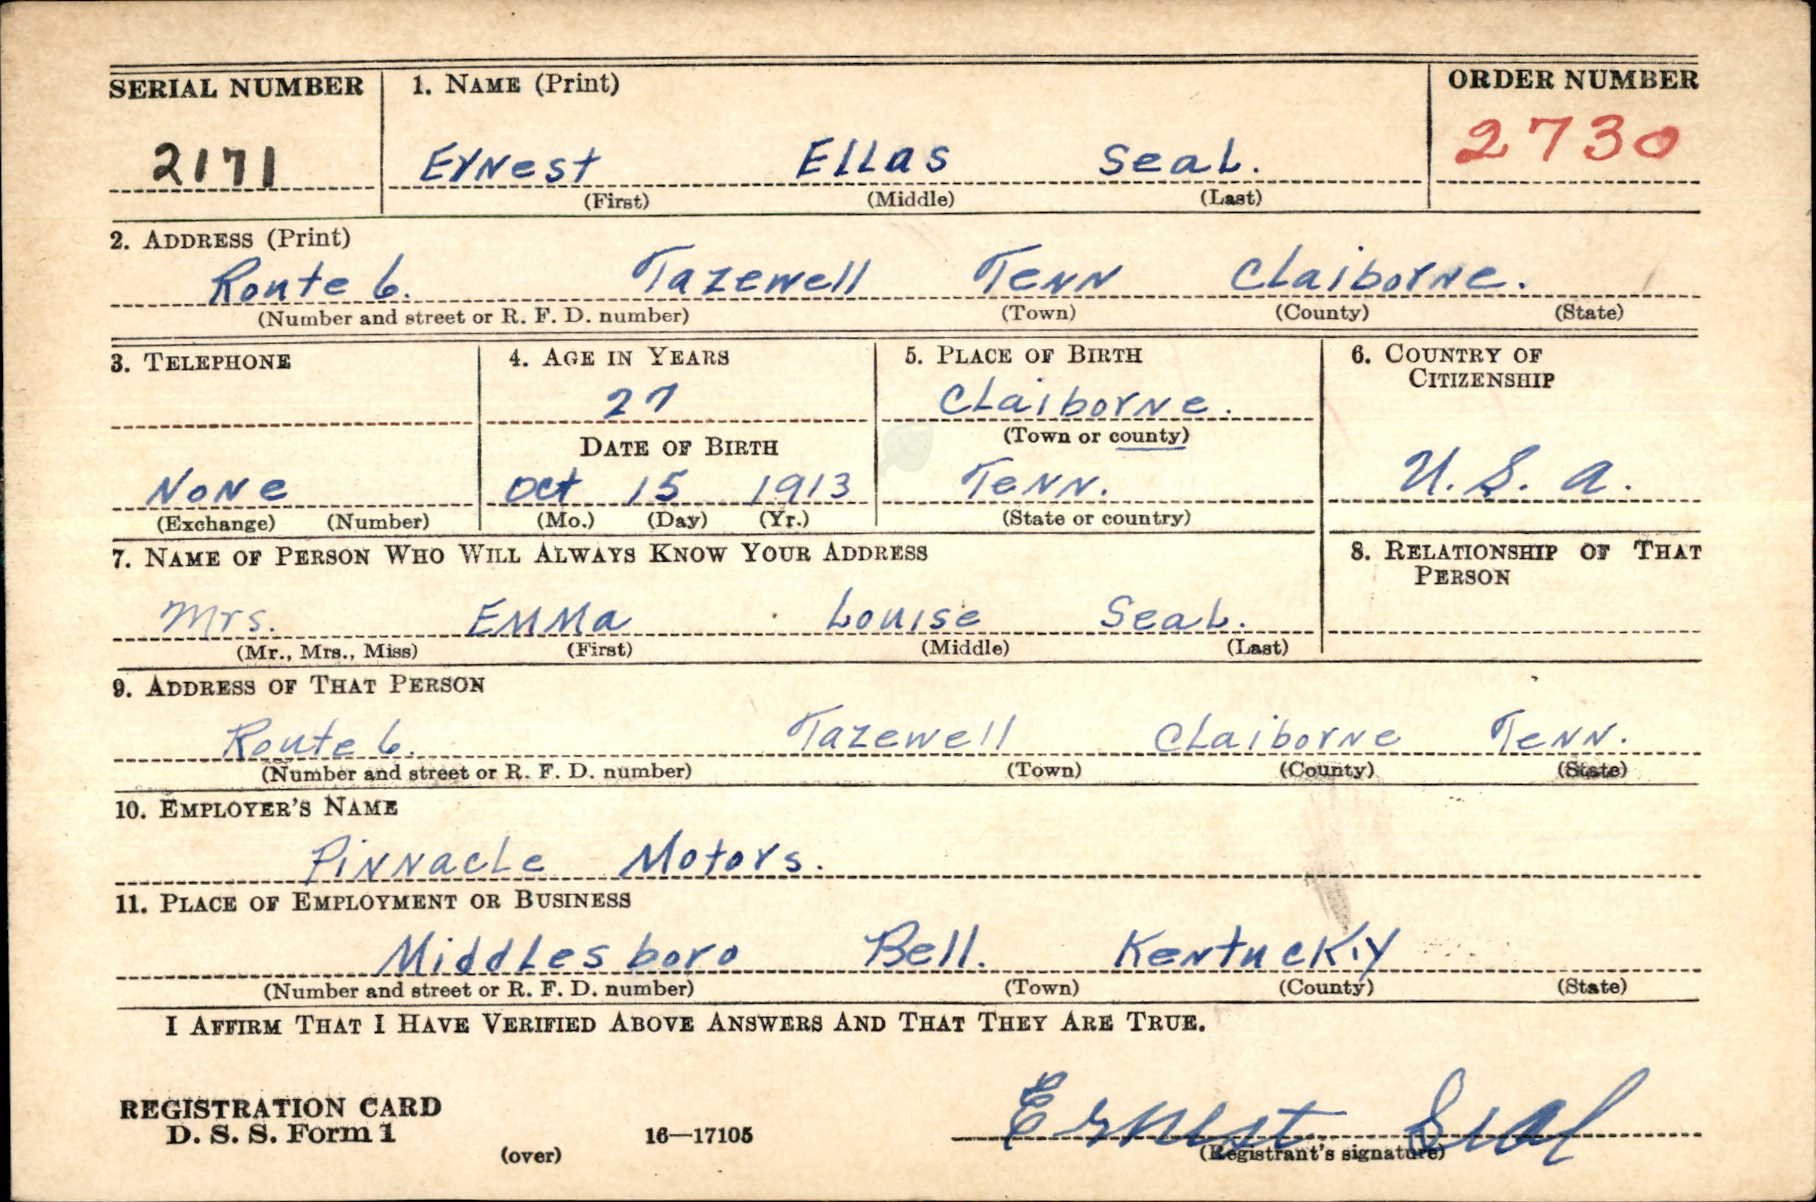 SERIAL NUMBER 1. NAME (Print) ORDER NUMBER
2171 Ernest Ellas Seal. 2730
(First) (Middle) (Last)
2. ADDRESS (Print)
Route 6. Tazewell Tenn Claiborne.
(Number and street or R. F. D. number) (Town) (County) (State)
3. TELEPHONE 4. AGE IN YEARS 5. PLACE OF BIRTH 6. COUNTRY OF CITIZENSHIP
27 Claiborne.
DATE OF BIRTH (Town or county)
None Oct 15 1913 Tenn. U.S.A.
(Exchange) (Number) (Mo.) (Day) (Yr.) (State or country)
7. NAME OF PERSON WHO WILL ALWAYS KNOW YOUR ADDRESS 8. RELATIONSHIP OF THAT PERSON
Mrs. Emma Louise Seal.
(Mr., Mrs., Miss) (First) (Middle) (Last)
9. ADDRESS OF THAT PERSON
Route 6. Tazewell Claiborne Tenn.
(Number and street or R. F. D. number) (Town) (County) (State)
10. EMPLOYER'S NAME
Pinnacle Motors.
11. PLACE OF EMPLOYMENT OR BUSINESS
Middlesboro Bell. Kentucky
(Number and street or R. F. D. number) (Town) (County) (State)
I AFFIRM THAT I HAVE VERIFIED ABOVE ANSWERS AND THAT THEY ARE TRUE.
REGISTRATION CARD
D. S. S. Form 1
(over) 16—17105
Ernest Seal
(Registrant's signature)